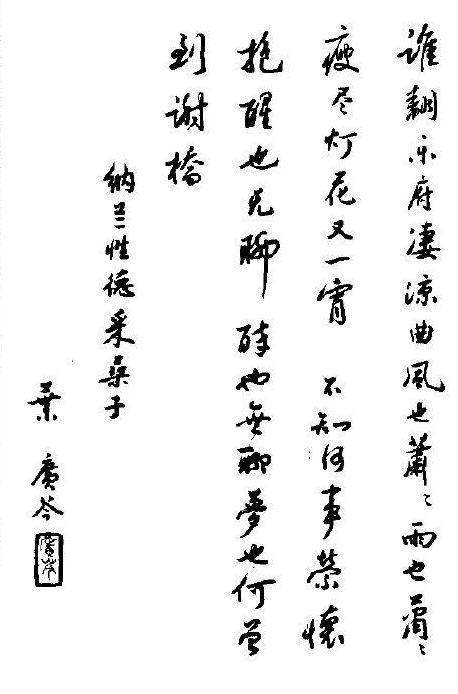 谁翻乐府凄凉曲风也萧〻雨也萧〻
瘦尽灯花又一宵 不知何事萦怀
抱醒也无聊 醉也無聊夢也何曾
到谢橋
纳兰性德采桑子
葉廣芩
廣芩